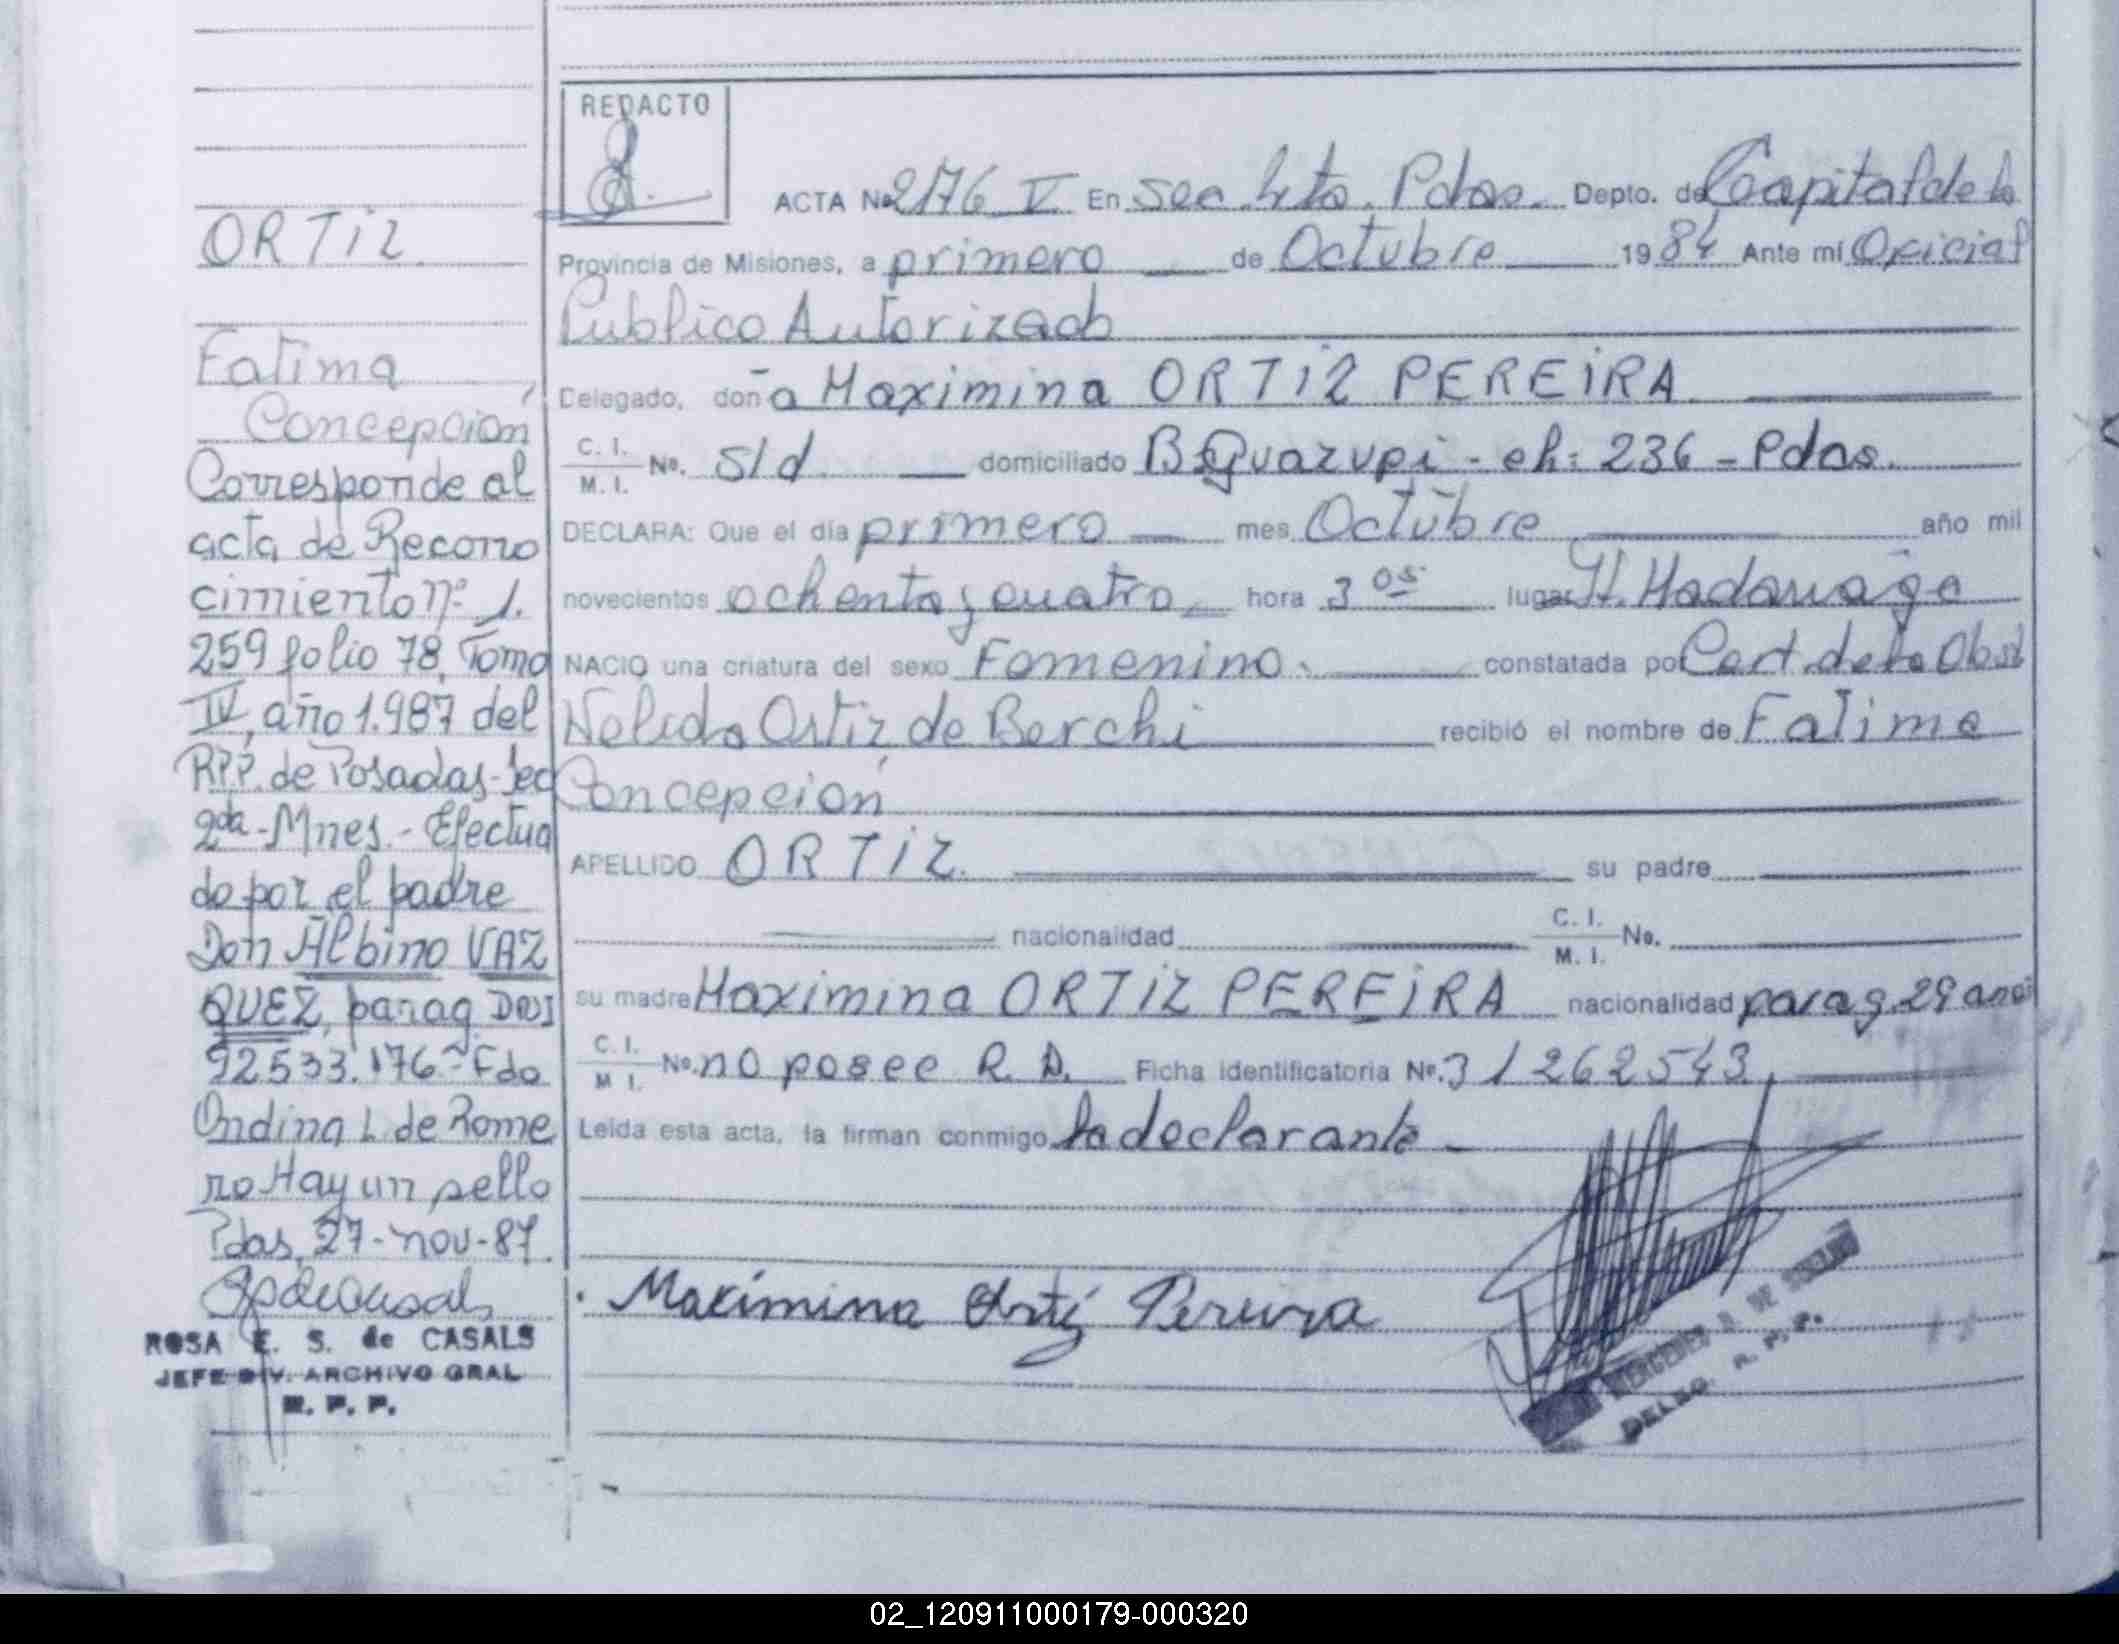 ORTIZ
Fatima
Concepción
Corresponde al
acta de Recono
cimiento nº 1.
259 folio 78, Tomo
IV, año 1.987 del
RPP. de Posadas-Sec
2da-Mnes.- Efectua
do por el padre
Don Albino VAZ
QUEZ, parag. DNI
92533.176 - Fdo
Ondina L. de Rome
ro Hay un sello
Pdas, 27-nov-87.
ROSA E. S. de CASALS
JEFE DIV. ARCHIVO GRAL
R. P. P.
REDACTO
ACTA Nº 2176 V En Sec. 4ta. Pdas. Depto. de Capital de la
Provincia de Misiones, a primero de Octubre 1984 Ante mí Oficial
Publico Autorizado
Delegado, doña Maximina ORTIZ PEREIRA
C. I.
M. I. Nº. s/d domiciliado Bº Guazupi - ch: 236 - Pdas.
DECLARA: Que el día primero mes Octubre año mil
novecientos ochenta y cuatro hora 3 os lugar H. Madariaga
NACIO una criatura del sexo Femenino. constatada por Cert. de la Obst
Nelida Ortiz de Berchi recibió el nombre de Fatima
Concepción
APELLIDO ORTIZ. su padre
nacionalidad C. I.
M. I. No.
su madre Maximina ORTIZ PEREIRA nacionalidad parag. 29 anos
C. I.
M I. Nº. no posee R. D. Ficha identificatoria Nº. 31262543
Leida esta acta, la firman conmigo la declarante
Maximina Ortiz Pereira
DELEG. R. P. P.
02_120911000179-000320